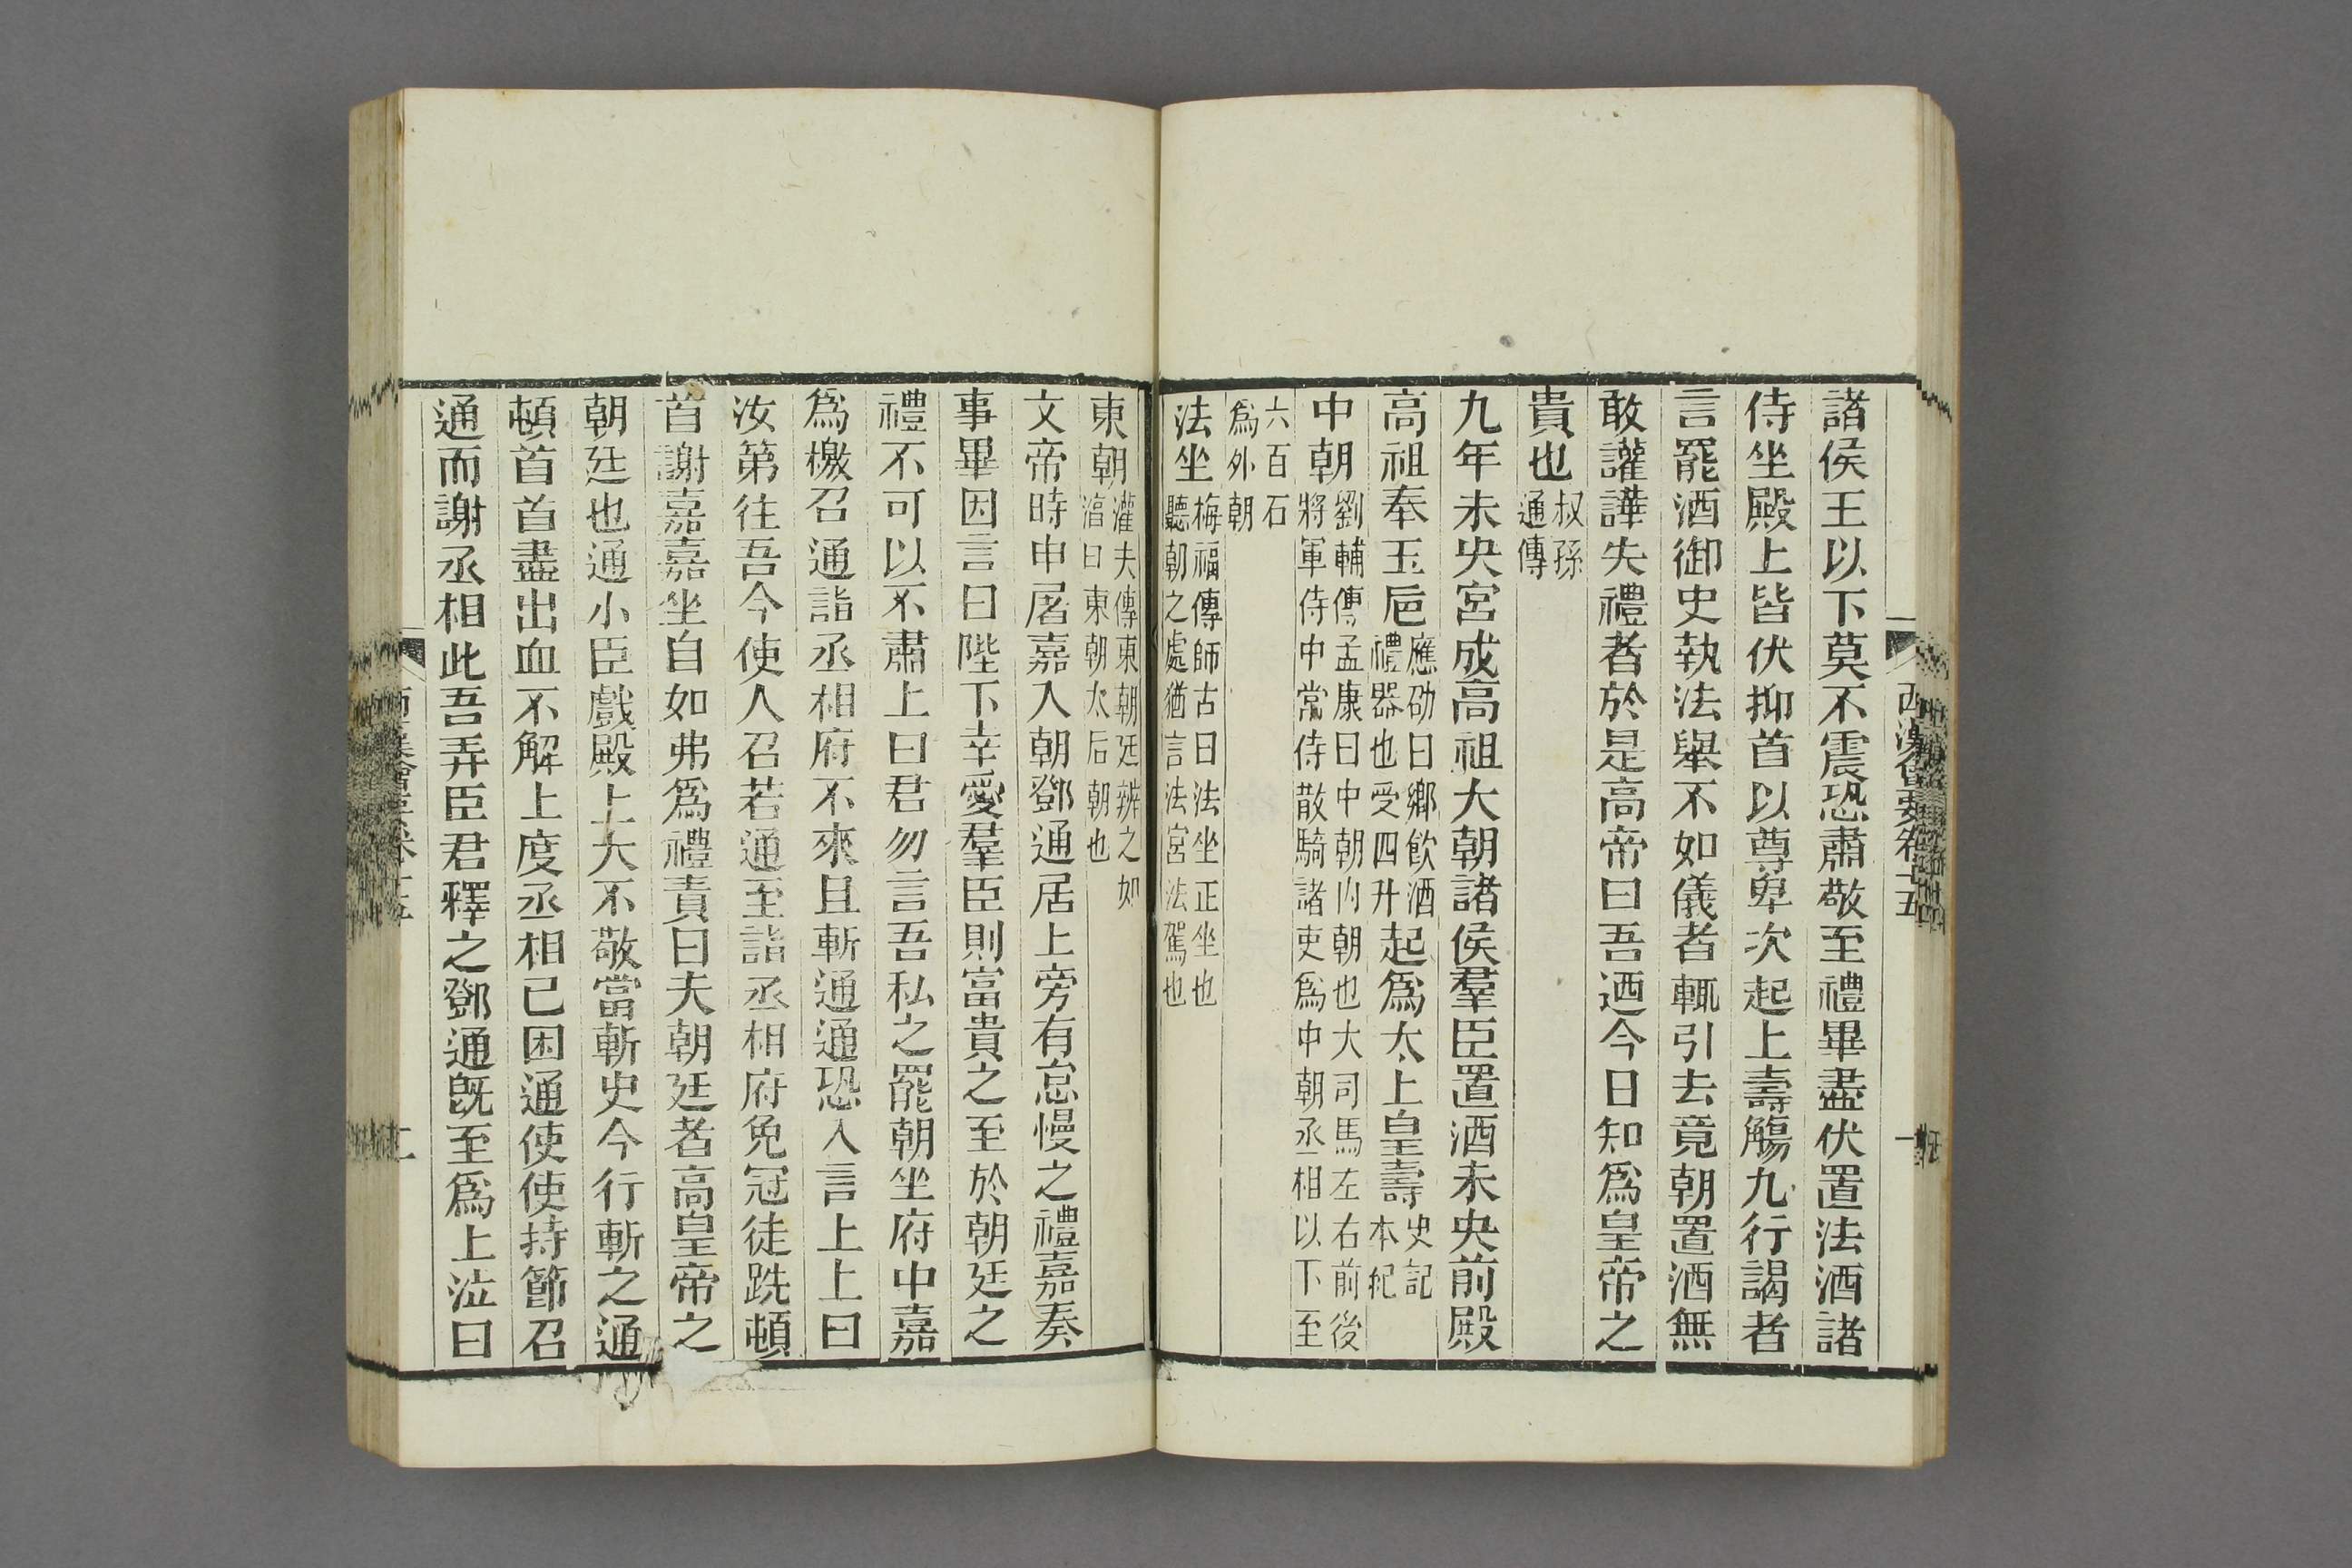 諸侯王以下莫不震恐肅敬至禮畢盡伏置法酒諸
侍坐殿上皆伏抑首以尊卑次起上壽觴九行謁者
言罷酒御史執法舉不如儀者輒引去竟朝置酒無
敢讙譁失禮者於是高帝曰吾迺今日知爲皇帝之
貴也叔孫通傳
九年未央宮成高祖大朝諸侯羣臣置酒未央前殿
高祖奉玉巵應劭曰鄉飲酒禮器也受四升起爲太上皇壽史記本紀
中朝劉輔傳孟康曰中朝內朝也大司馬左右前後將軍侍中常侍散騎諸吏爲中朝丞相以下至
六百石爲外朝
法坐梅福傳師古曰法坐正坐也聽朝之處猶言法宮法駕也
東朝灌夫傳東朝廷辨之如淳曰東朝太后朝也
文帝時申屠嘉入朝鄧通居上旁有怠慢之禮嘉奏
事畢因言曰陛下幸愛羣臣則富貴之至於朝廷之
禮不可以不肅上曰君勿言吾私之罷朝坐府中嘉
爲檄召通詣丞相府不來且斬通通恐入言上上曰
汝第往吾今使人召若通至詣丞相府免冠徒跣頓
首謝嘉嘉坐自如弗爲禮責曰夫朝廷者高皇帝之
朝廷也通小臣戲殿上大不敬當斬史今行斬之通
頓首首盡出血不解上度丞相已困通使使持節召
通而謝丞相此吾弄臣君釋之鄧通旣至爲上泣曰
西漢會要卷十五
一
二